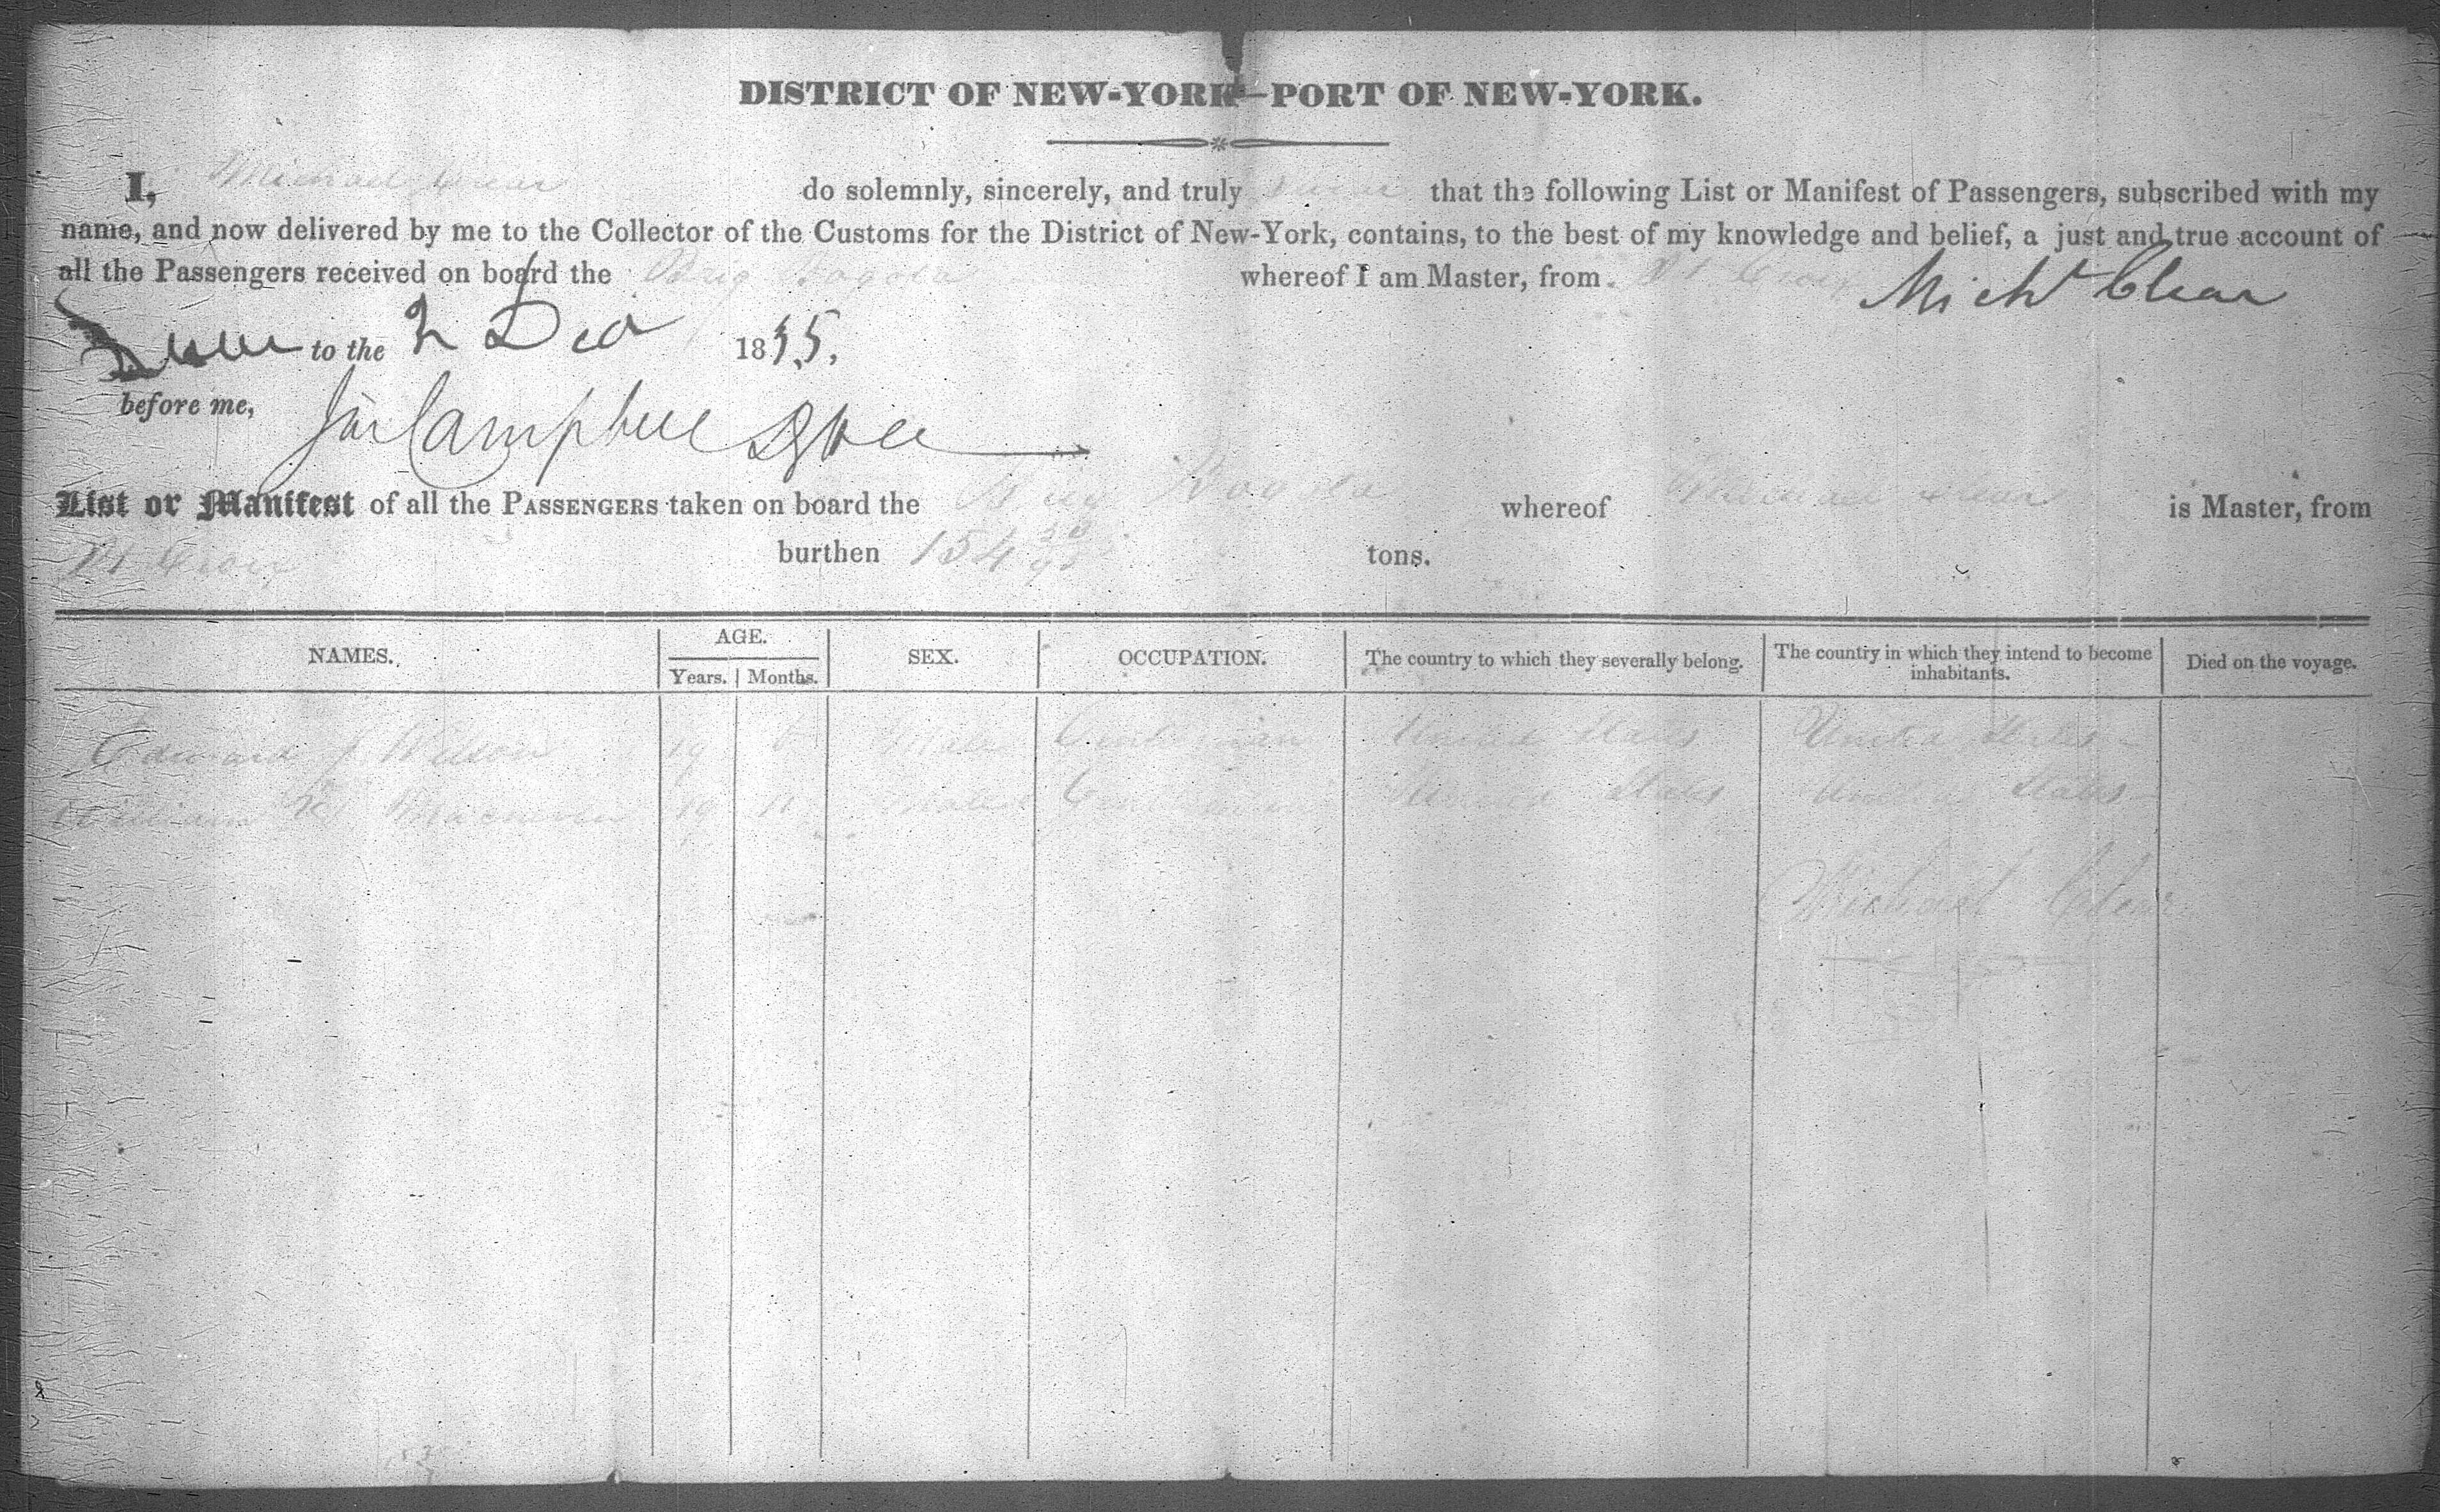 DISTRICT OF NEW-YORK—PORT OF NEW-YORK.
I, Michael Clear do solemnly, sincerely, and truly swear that the following List or Manifest of Passengers, subscribed with my
name, and now delivered by me to the Collector of the Customs for the District of New-York, contains, to the best of my knowledge and belief, a just and true account of
all the Passengers received on board the Brig Bogota whereof I am Master, from St Croix
Michl Clear
to the 2 Dec 1835.
before me, Campbell
List or Manifest of all the PASSENGERS taken on board the Brig Bogota whereof Michael Clear is Master, from
St Croix burthen 154 tons.
NAMES. AGE. Years. Months. SEX. OCCUPATION. The country to which they severally belong. The country in which they intend to become inhabitants. Died on the voyage.
Edward J Wilson 19 Male Gentleman United States United States
William 19 11 Male Gentleman United States United States
Michael Clear